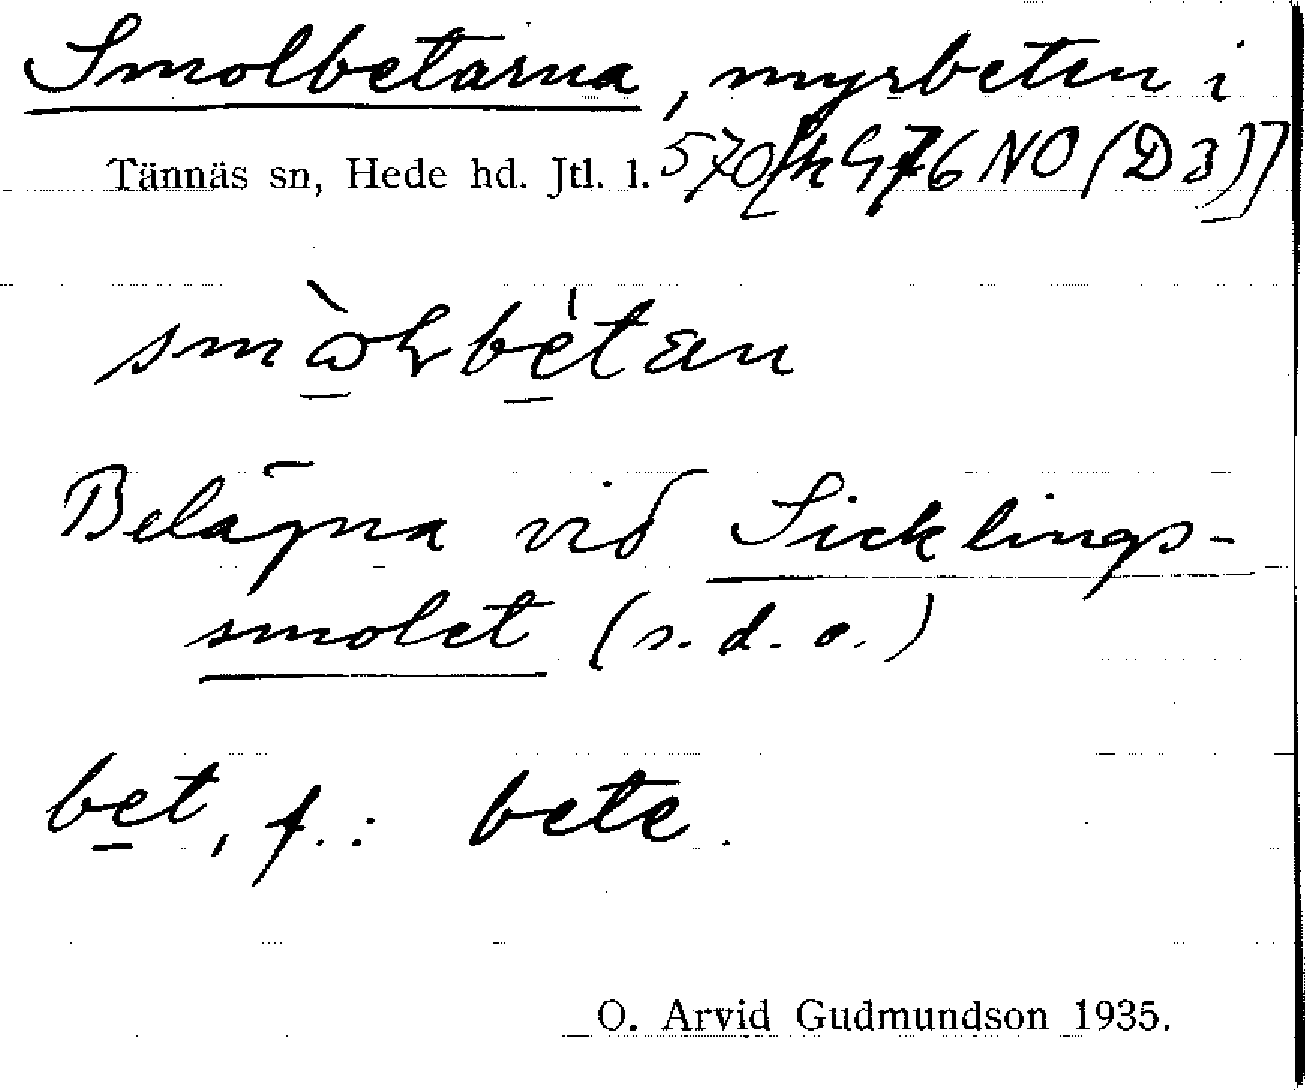 Smolbetarna, myrbeten i
Tännäs sn, Hede hd. Jtl. l. 570 [k 476 NO (D3)]
Belägna vid Sicklings-
smolet (s. d. o.)
bet, f.: bete.
O. Arvid Gudmundson 1935.